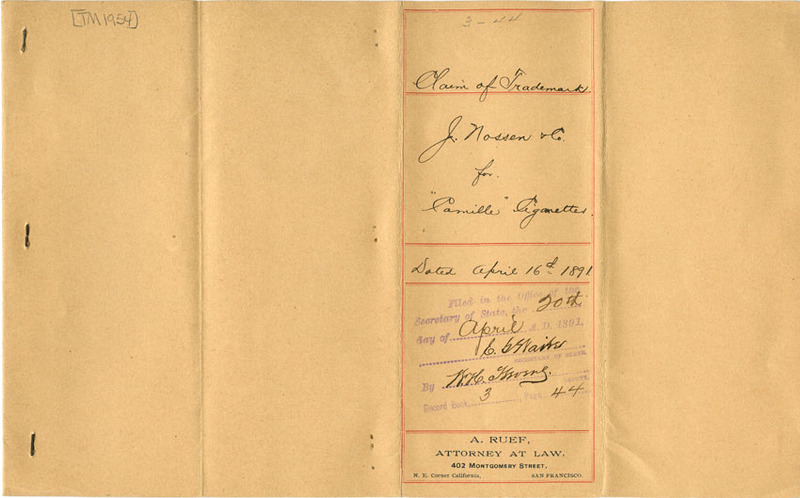 [TM1954]
3-44
Claim of Trademark
J. Nossen & Co.
for
"Camille" Cigarettes.
Dated April 16th 1891
Filed in the Office of the
Secretary of State, the 20th
day of April A. D. 1891.
E. G. Waite
SECRETARY OF STATE.
By W. H.
DEPUTY.
Record Book, 3, Page 44
A. RUEF,
ATTORNEY AT LAW.
402 MONTGOMERY STREET,
N. E. Corner California, SAN FRANCISCO.